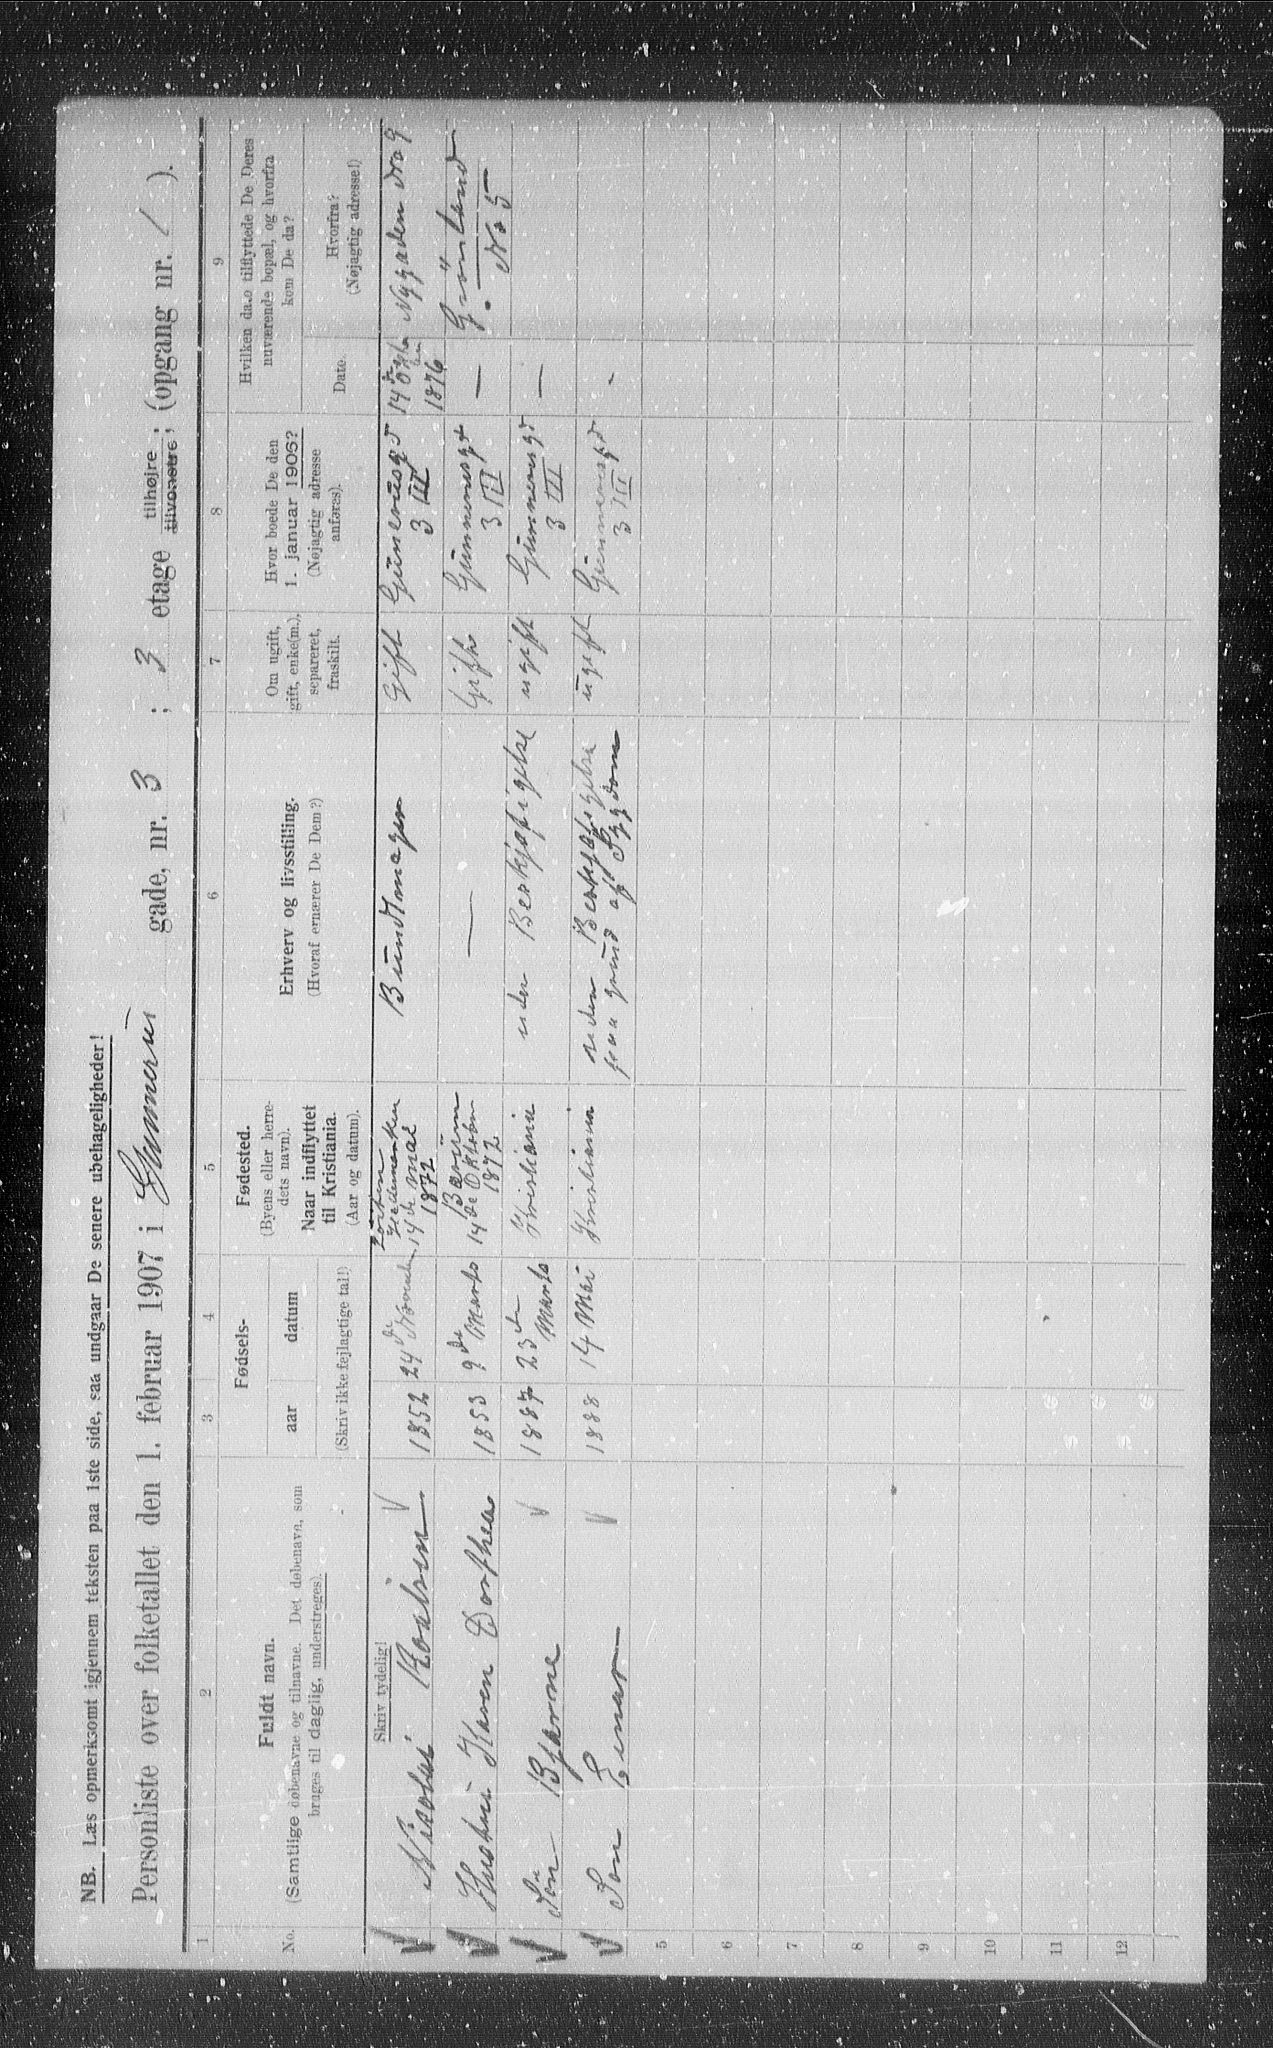 NB. Læs opmerksomt igjennem teksten paa 1ste side, saa undgaar De senere ubehageligheder!
Personliste over folketallet den 1. februar 1907 i Gunnerus gade, nr. 3 ; 3 etage tilhøjre tilvenstre; (opgang nr. / ).
1 2 3 4 5 6 7 8 9
No.
Fuldt navn.
(Samtlige døbenavne og tilnavne. Det døbenavn, som
bruges til daglig, understreges).
Fødsels-
aar datum
(Skriv ikke fejlagtige tal!)
Fødested.
(Byens eller herre-
dets navn).
Naar indflyttet
til Kristiania.
(Aar og datum).
Erhverv og livsstilling.
(Hvoraf ernærer De Dem?)
Om ugift,
gift, enke(m.),
separeret,
fraskilt.
Hvor boede De den
1. januar 1906?
(Nøjagtig adresse
anføres).
Hvilken dato tilflyttede De Deres
nuværende bopæl, og hvorfra
kom De da?
Date.
Hvorfra?
(Nøjagtig adresse!)
Skriv tydelig!
1 Nikolai 1852 24de November
14de Mai
1872
Bundtmager Gift Gunerusgd
3 III
14de
1876
Nygaden No 9
2 Hustru Karen Dorthea 1853 9de Marts Bærum
14de Oktober
1872
— Gift Gunnerusgd
3 III
— Grönland
No 5
3 Sön Bjarne 1887 23de Marts Kristiania uden Beskjæftigelse ugift Gunnerusgd
3 III
—
4 Son Einar 1888 14 Mai Kristiania uden Beskjæftigelse
paa grund af Sygdom
ugift Gunnerusgd
3 III
-
5
6
7
8
9
10
11
12